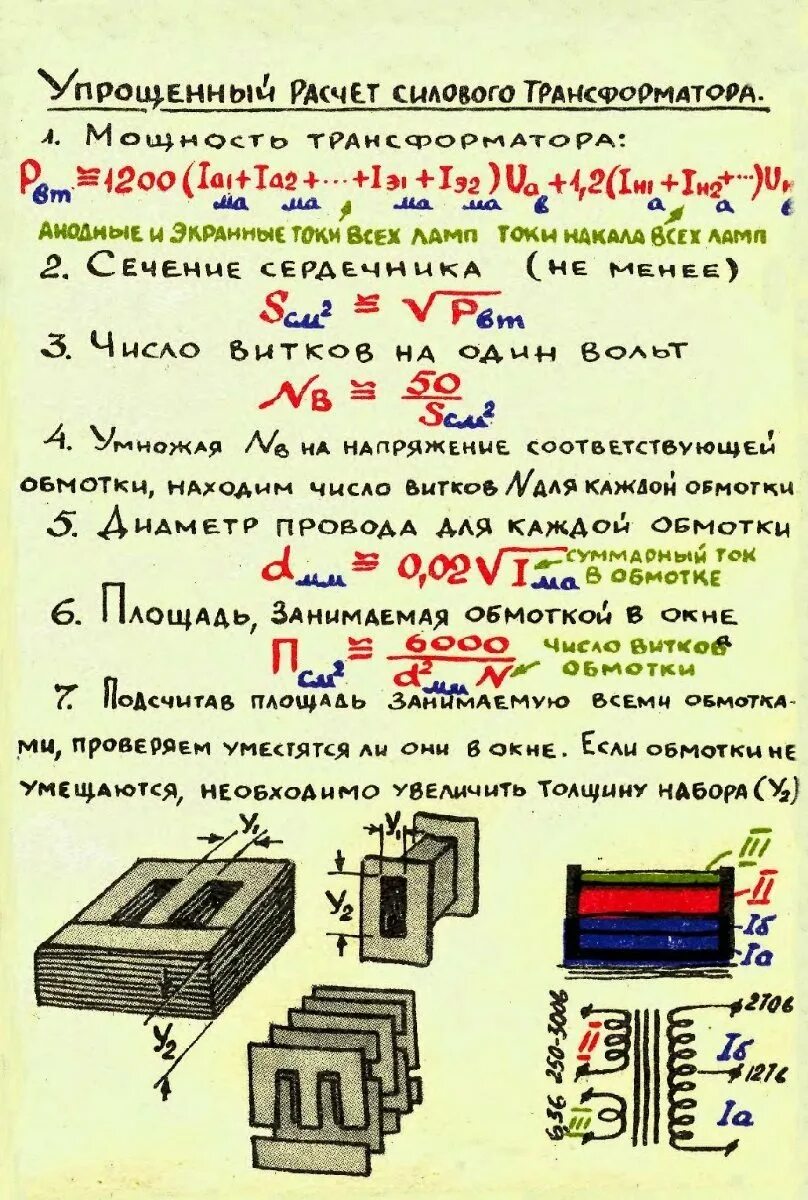 Упрощенный расчет силового трансформатора.
1. Мощность трансформатора:
Pвт ≅ 1200 (Iа1 + Iа2 + ··· + Iэ1 + Iэ2) Uа + 1,2 (Iн1 + Iн2 + ···) Uн
ма ма ма ма в а а в
анодные и экранные токи всех ламп токи накала всех ламп
2. Сечение сердечника (не менее)
Sсм² ≅ √Pвт
3. Число витков на один вольт
Nв ≅ 50 / Sсм²
4. Умножая Nв на напряжение соответствующей
обмотки, находим число витков N для каждой обмотки
5. Диаметр провода для каждой обмотки
dмм ≅ 0,02 √Iма суммарный ток
в обмотке
6. Площадь, занимаемая обмоткой в окне
Псм² ≅ 6000 / d²мм N число витков в
обмотки
7. Подсчитав площадь занимаемую всеми обмотка-
ми, проверяем уместятся ли они в окне. Если обмотки не
умещаются, необходимо увеличить толщину набора (У₂)
У₁
У₂
У₁
У₂
III
II
Iб
Iа
250-300в
II
6,3в
III
270в
Iб
127в
Iа